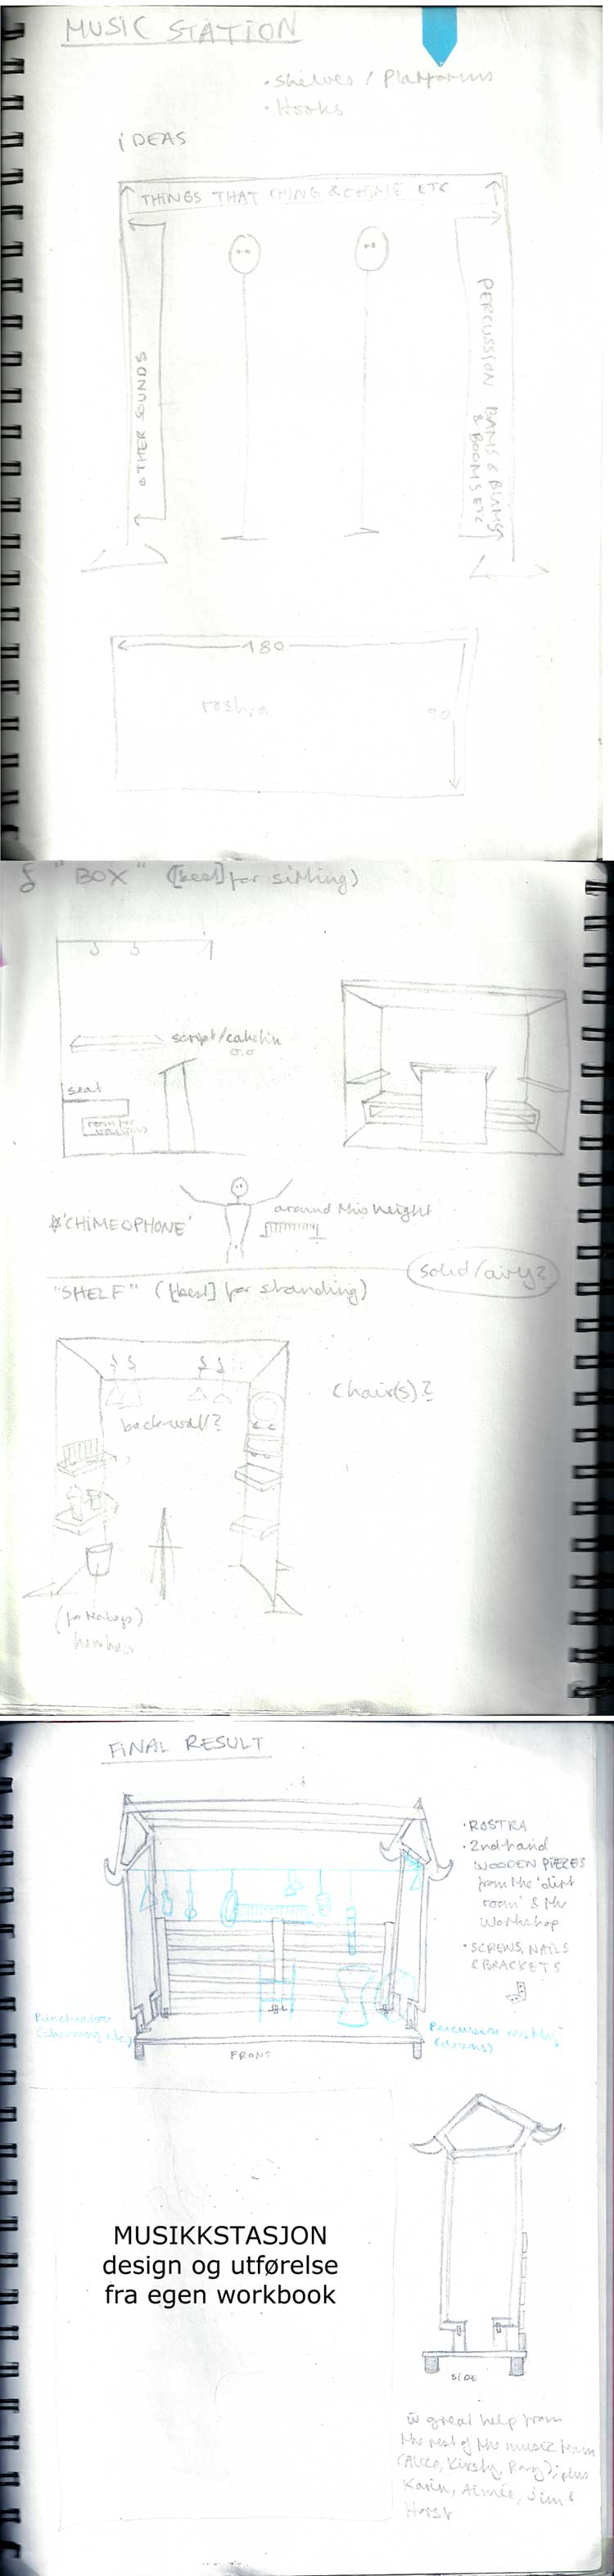 MUSIC STATION
• Shelves / Platforms
• Hooks
iDEAS
THINGS THAT CHING & CHIME ETC
OTHER SOUNDS
PERCUSSION BAMS & BUMS
& BOOMS ETC
180
90
"BOX" ([best] for sitting)
script/
seat
room for
'CHIMEOPHONE'
around this height
solid/airy?
"SHELF" ([best] for standing)
Chair(s)?
back-wall?
FINAL RESULT
• ROSTRA
• 2nd hand
WOODEN PIECES
from the 'dirt
room' & the
Workshop
• SCREWS, NAILS
& BRACKETS
Percussion mostly
(drums)
FRONT
MUSIKKSTASJON
design og utførelse
fra egen workbook
SIDE
great help from
the rest of the music team
Kirsty, plus
Karin, Aimée, Jim &
Horst